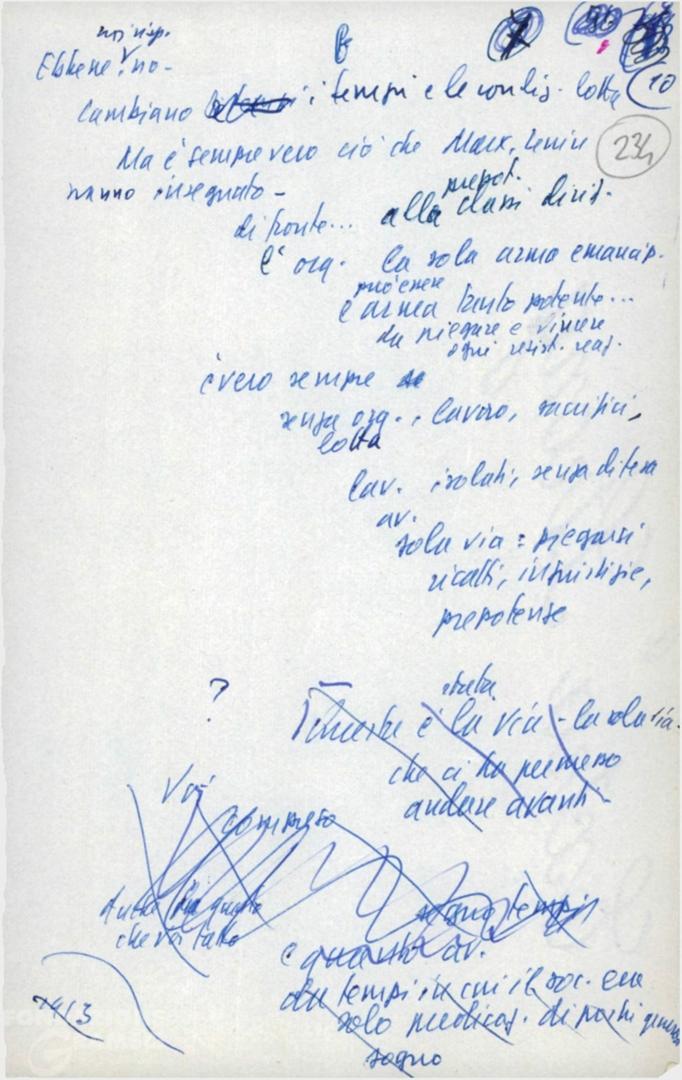 noi risp.
Ebbene: no -
10
Cambiano i tempi e le condiz. lotta
234
Ma è sempre vero ciò che Marx, Lenin
hanno insegnato -
prepot.
di fronte... alla classi dirig.
l'org. la sola arma emancip.
può essere
è arma tanto potente...
da piegare e vincere
ogni resist. reaz.
è vero sempre
senza org., lavoro, sacrifici,
lotta
lav. isolati, senza difesa
av.
sola via: piegarsi
ricatti, ingiustizie,
prepotenze
?
stata
Questa è la via - la sola via
che ci ha permesso
andare avanti -
Voi
compreso
Anche da questo
che voi fate
sogno tempi
e quanto av.
da tempi in cui il soc. era
solo predicaz. di pochi
sogno